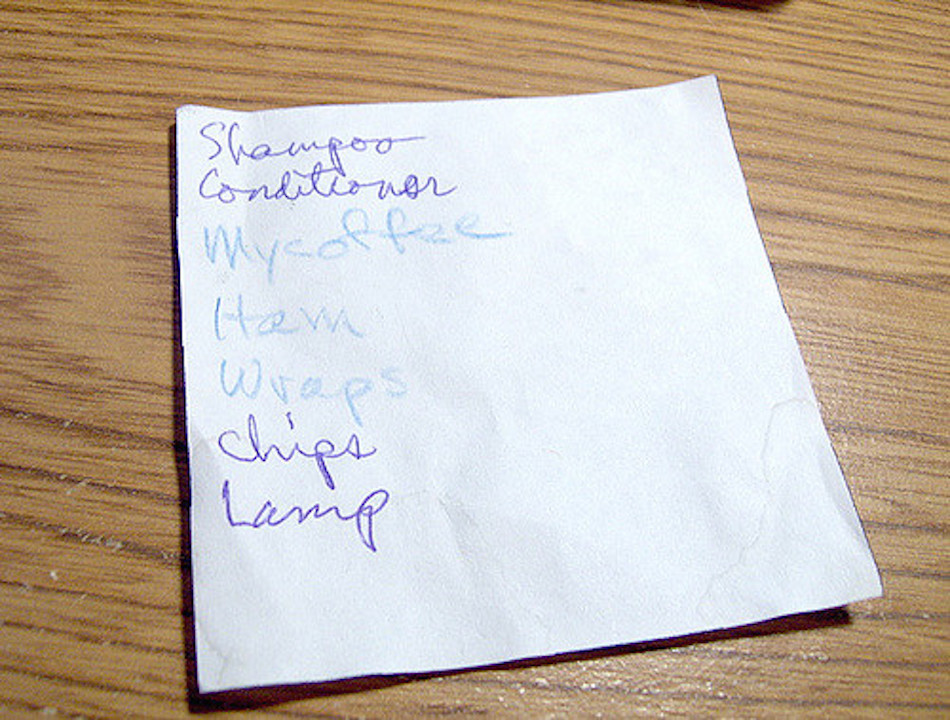 Shampoo
Conditioner
My coffee
Ham
Wraps
chips
Lamp